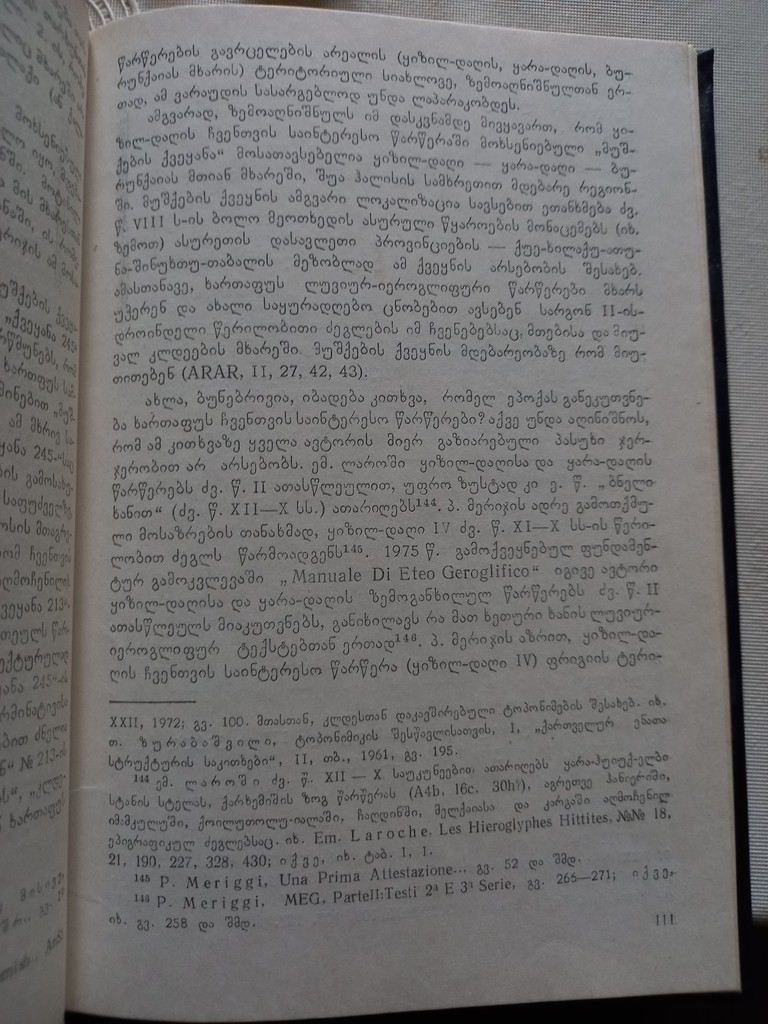 წარწერების გავრცელების არეალის (ყიზილ-დაღის, ყარა-დაღის, ბუ-
რუნქაიას მხარის) ტერიტორიული სიახლოვე, ზემოაღნიშნულთან ერ-
თად, ამ ვარაუდის სასარგებლოდ უნდა ლაპარაკობდეს.
ამგვარად, ზემოაღნიშნულს იმ დასკვნამდე მივყავართ, რომ ყი-
ზილ-დაღის ჩვენთვის საინტერესო წარწერაში მოხსენიებული „მუშ-
ქების ქვეყანა“ მოსათავსებელია ყიზილ-დაღი — ყარა-დაღი — ბუ-
რუნქაიას მთიან მხარეში, შუა ჰალისის სამხრეთით მდებარე რეგიონ-
ში. მუშქების ქვეყნის ამგვარი ლოკალიზაცია სავსებით ეთანხმება ძვ.
წ. VIII ს-ის ბოლო მეოთხედის ასურული წყაროების მონაცემებს (იხ.
ზემოთ) ასურეთის დასავლეთი პროვინციების — ქუე-ხილაქუ-ათუ-
ნა-შინუხთუ-თაბალის მეზობლად ამ ქვეყნის არსებობის შესახებ.
ამასთანავე, ხართაფუს ლუვიურ-იეროგლიფური წარწერები მხარს
უჭერენ და ახალი საყურადღებო ცნობებით ავსებენ სარგონ II-ის-
დროინდელი წერილობითი ძეგლების იმ ჩვენებებსაც, მთებისა და მიუ-
ვალ კლდეების მხარეში მუშქების ქვეყნის მდებარეობაზე რომ მიუ-
თითებენ (ARAR, II, 27, 42, 43).
ახლა, ბუნებრივია, იბადება კითხვა, რომელ ეპოქას განეკუთვნე-
ბა ხართაფუს ჩვენთვის საინტერესო წარწერები? აქვე უნდა აღინიშნოს,
რომ ამ კითხვაზე ყველა ავტორის მიერ გაზიარებული პასუხი ჯერ-
ჯერობით არ არსებობს. ემ. ლაროში ყიზილ-დაღისა და ყარა-დაღის
წარწერებს ძვ. წ. II ათასწლეულით, უფრო ზუსტად კი ე. წ. „ბნელი
ხანით“ (ძვ. წ. XII—X სს.) ათარიღებს¹⁴⁴. პ. მერიჯის ადრე გამოთქმუ-
ლი მოსაზრების თანახმად, ყიზილ-დაღი IV ძვ. წ. XI—X სს-ის წერი-
ლობით ძეგლს წარმოადგენს¹⁴⁵. 1975 წ. გამოქვეყნებულ ფუნდამენ-
ტურ გამოკვლევაში „Manuale Di Eteo Geroglifico“ იგივე ავტორი
ყიზილ-დაღისა და ყარა-დაღის ზემოგანხილულ წარწერებს ძვ. წ. II
ათასწლეულს მიაკუთვნებს, განიხილავს რა მათ ხეთური ხანის ლუვიურ-
იეროგლიფურ ტექსტებთან ერთად¹⁴⁶. პ. მერიჯის აზრით, ყიზილ-და-
ღის ჩვენთვის საინტერესო წარწერა (ყიზილ-დაღი IV) ფრიგიის ტერი-
XXII, 1972; გვ. 100. მთასთან, კლდესთან დაკავშირებული ტოპონიმების შესახებ. იხ.
თ. ზურაბაშვილი, ტოპონიმიკის შესწავლისათვის, I, „ქართველურ ენათა
სტრუქტურის საკითხები“, II, თბ., 1961, გვ. 195.
¹⁴⁴ ემ. ლაროში ძვ. წ. XII — X საუკუნეებით ათარიღებს ყარა-ჰუიუქ-ელბი
სტანის სტელას, ქარხემიშის ზოგ წარწერას (A4b, 16c, 30h?), აგრეთვე ჰანიერიში,
იმამკულუში, ქოილუთოლუ-იალაში, ჩაღდინში, მელქაიასა და კარგაში აღმოჩენილ
ეპიგრაფიკულ ძეგლებსაც. იხ. Em. Laroche, Les Hieroglyphes Hittites, №№ 18,
21, 190, 227, 328, 430; იქვე, იხ. ტაბ. I, 1.
¹⁴⁵ P. Meriggi, Una Prima Attestazione... გვ. 52 და შმდ.
¹⁴³ P. Meriggi, MEG, ParteII:Testi 2ª E 3ª Serie, გვ. 265—271; იქვე,
იხ. გვ. 258 და შმდ.
111